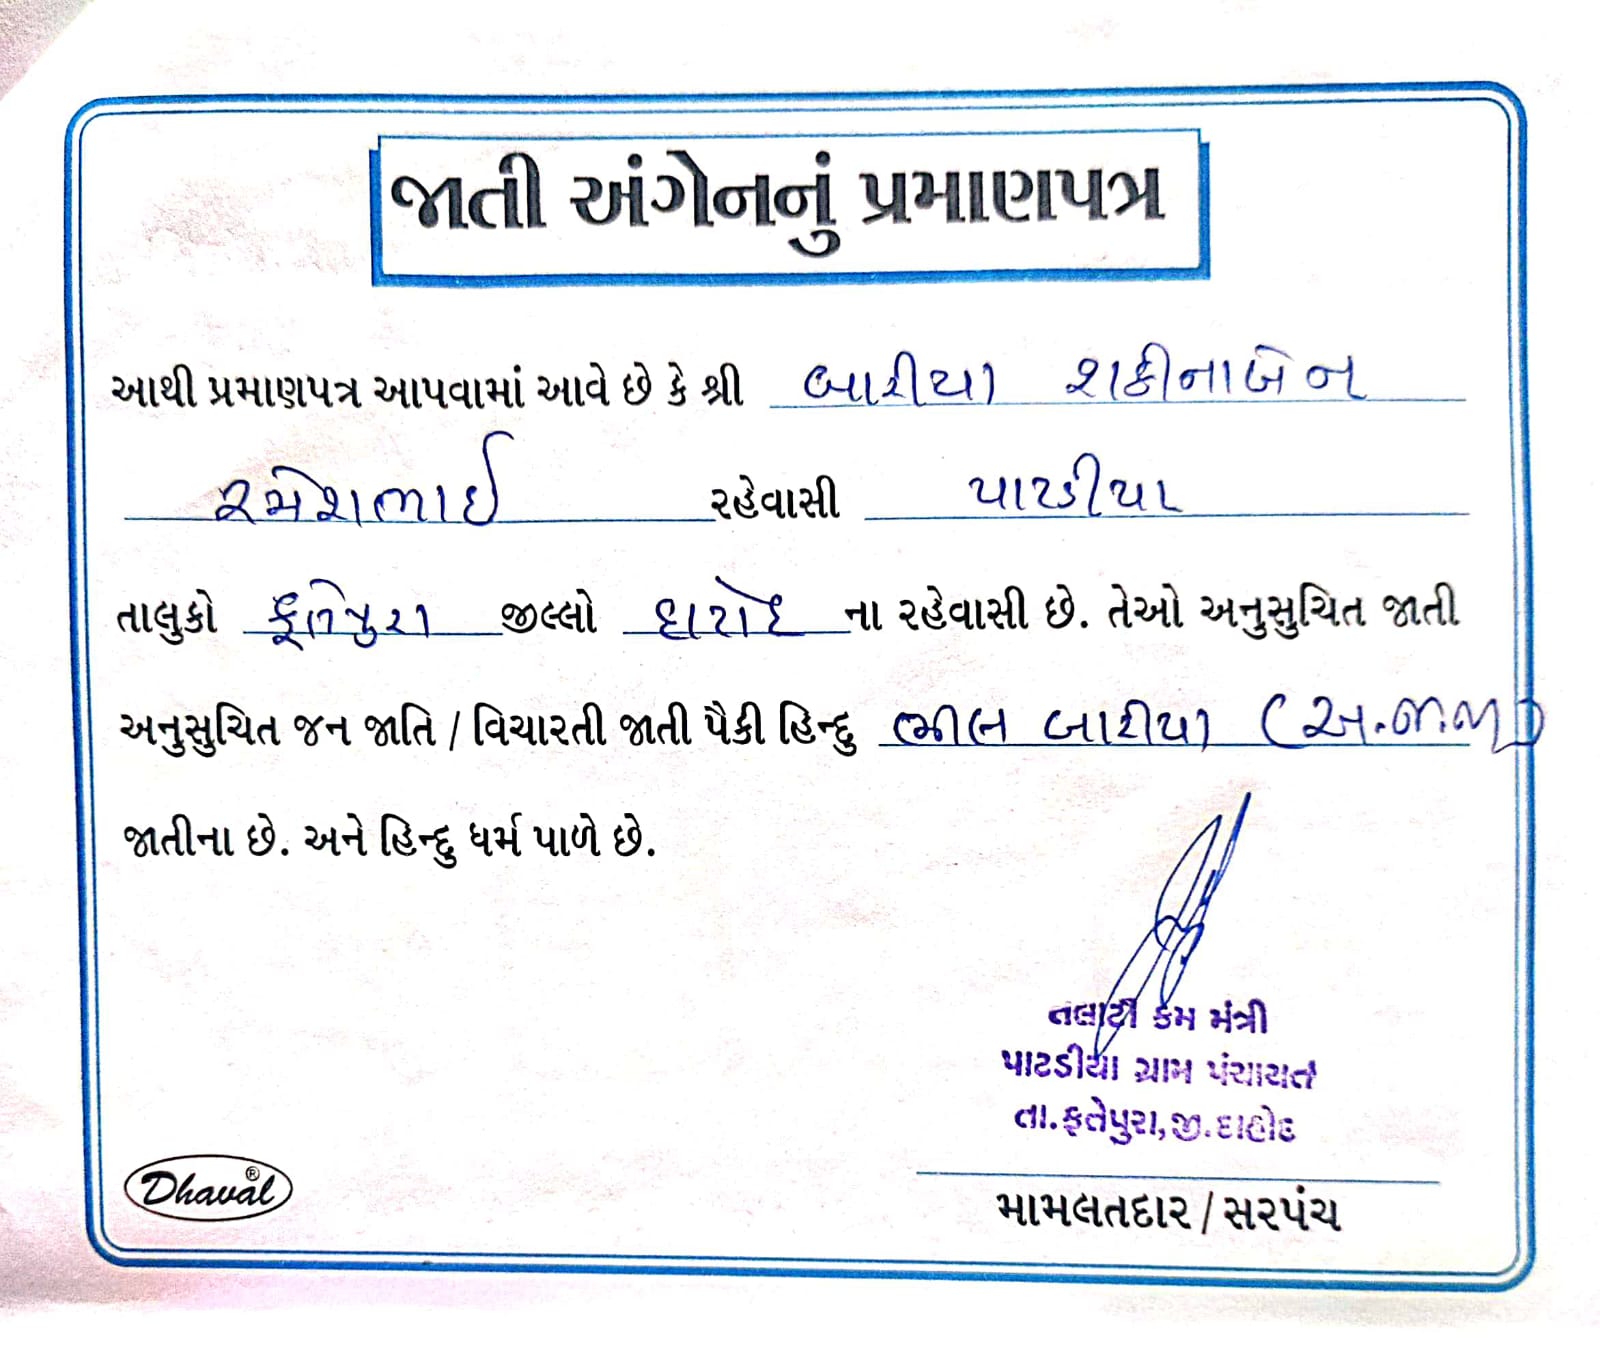 જાતી અંગેનનું પ્રમાણપત્ર
આથી પ્રમાણપત્ર આપવામાં આવે છે કે શ્રી બારીયા શકીનાબેન
રમેશભાઈ રહેવાસી પાટડીયા
તાલુકો ફતેપુરા જીલ્લો દાહોદ ના રહેવાસી છે. તેઓ અનુસુચિત જાતી
અનુસુચિત જન જાતિ / વિચારતી જાતી પૈકી હિન્દુ ભીલ બારીયા (અ.જ.જા)
જાતીના છે. અને હિન્દુ ધર્મ પાળે છે.
તલાટી કમ મંત્રી
પાટડીયા ગ્રામ પંચાયત
તા.ફતેપુરા,જી.દાહોદ
Dhaval®
મામલતદાર / સરપંચ